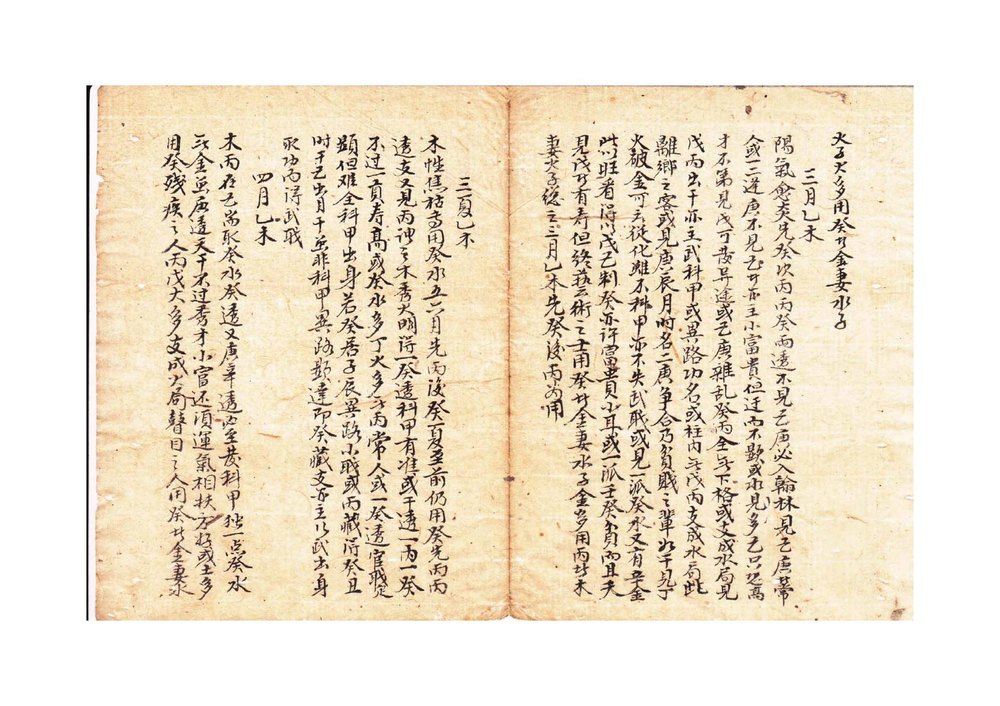 火子火多用癸者金妻水子
三月乙木
陽氣愈炎先癸次丙丙癸両透不見己庚必入翰林見己庚常
人或一二逢庚不見己者亦主小富貴但迂而不顕或水見多己只恐高
才不第見戊可發异途或己庚雜乱癸丙全無下格或支成水局見
戊丙出干亦主武科甲或異路功名或柱内無戊丙支成水局此
離鄉之客或見庚辰月時名二庚争合乃貧賤之輩如干見丁
火破金可云從化雖不科甲亦不失武職或見一派癸水又有辛金
此旺者得以戊己制癸亦許富貴小耳或一派壬癸貧而且夭
見戊者有寿但終藝術之士用癸者金妻水子金多用丙者木
妻火子総之三月乙木先癸後丙為用
三夏乙木
木性焦枯専用癸水五六月先丙後癸夏至前仍用癸先丙丙
透支又見丙神之木秀火明得一癸透科甲有准或干透一丙一癸
不过一貢寿高或癸水多丁火多無丙常人或一癸透官職定
顕但难全科甲出身若癸居子辰異路小職或丙藏得癸且
时干己出月干並非科甲異路顕達即癸藏支亦主以武出身
取功両得武職
四月乙木
木丙在己尚取癸水癸透又庚辛透必至發科甲独一点癸水
無金並庚透天干不过秀才小富还須運氣相扶方好或土多
用癸残疾之人丙戊火多支成火局瞽目之人用癸者金妻水